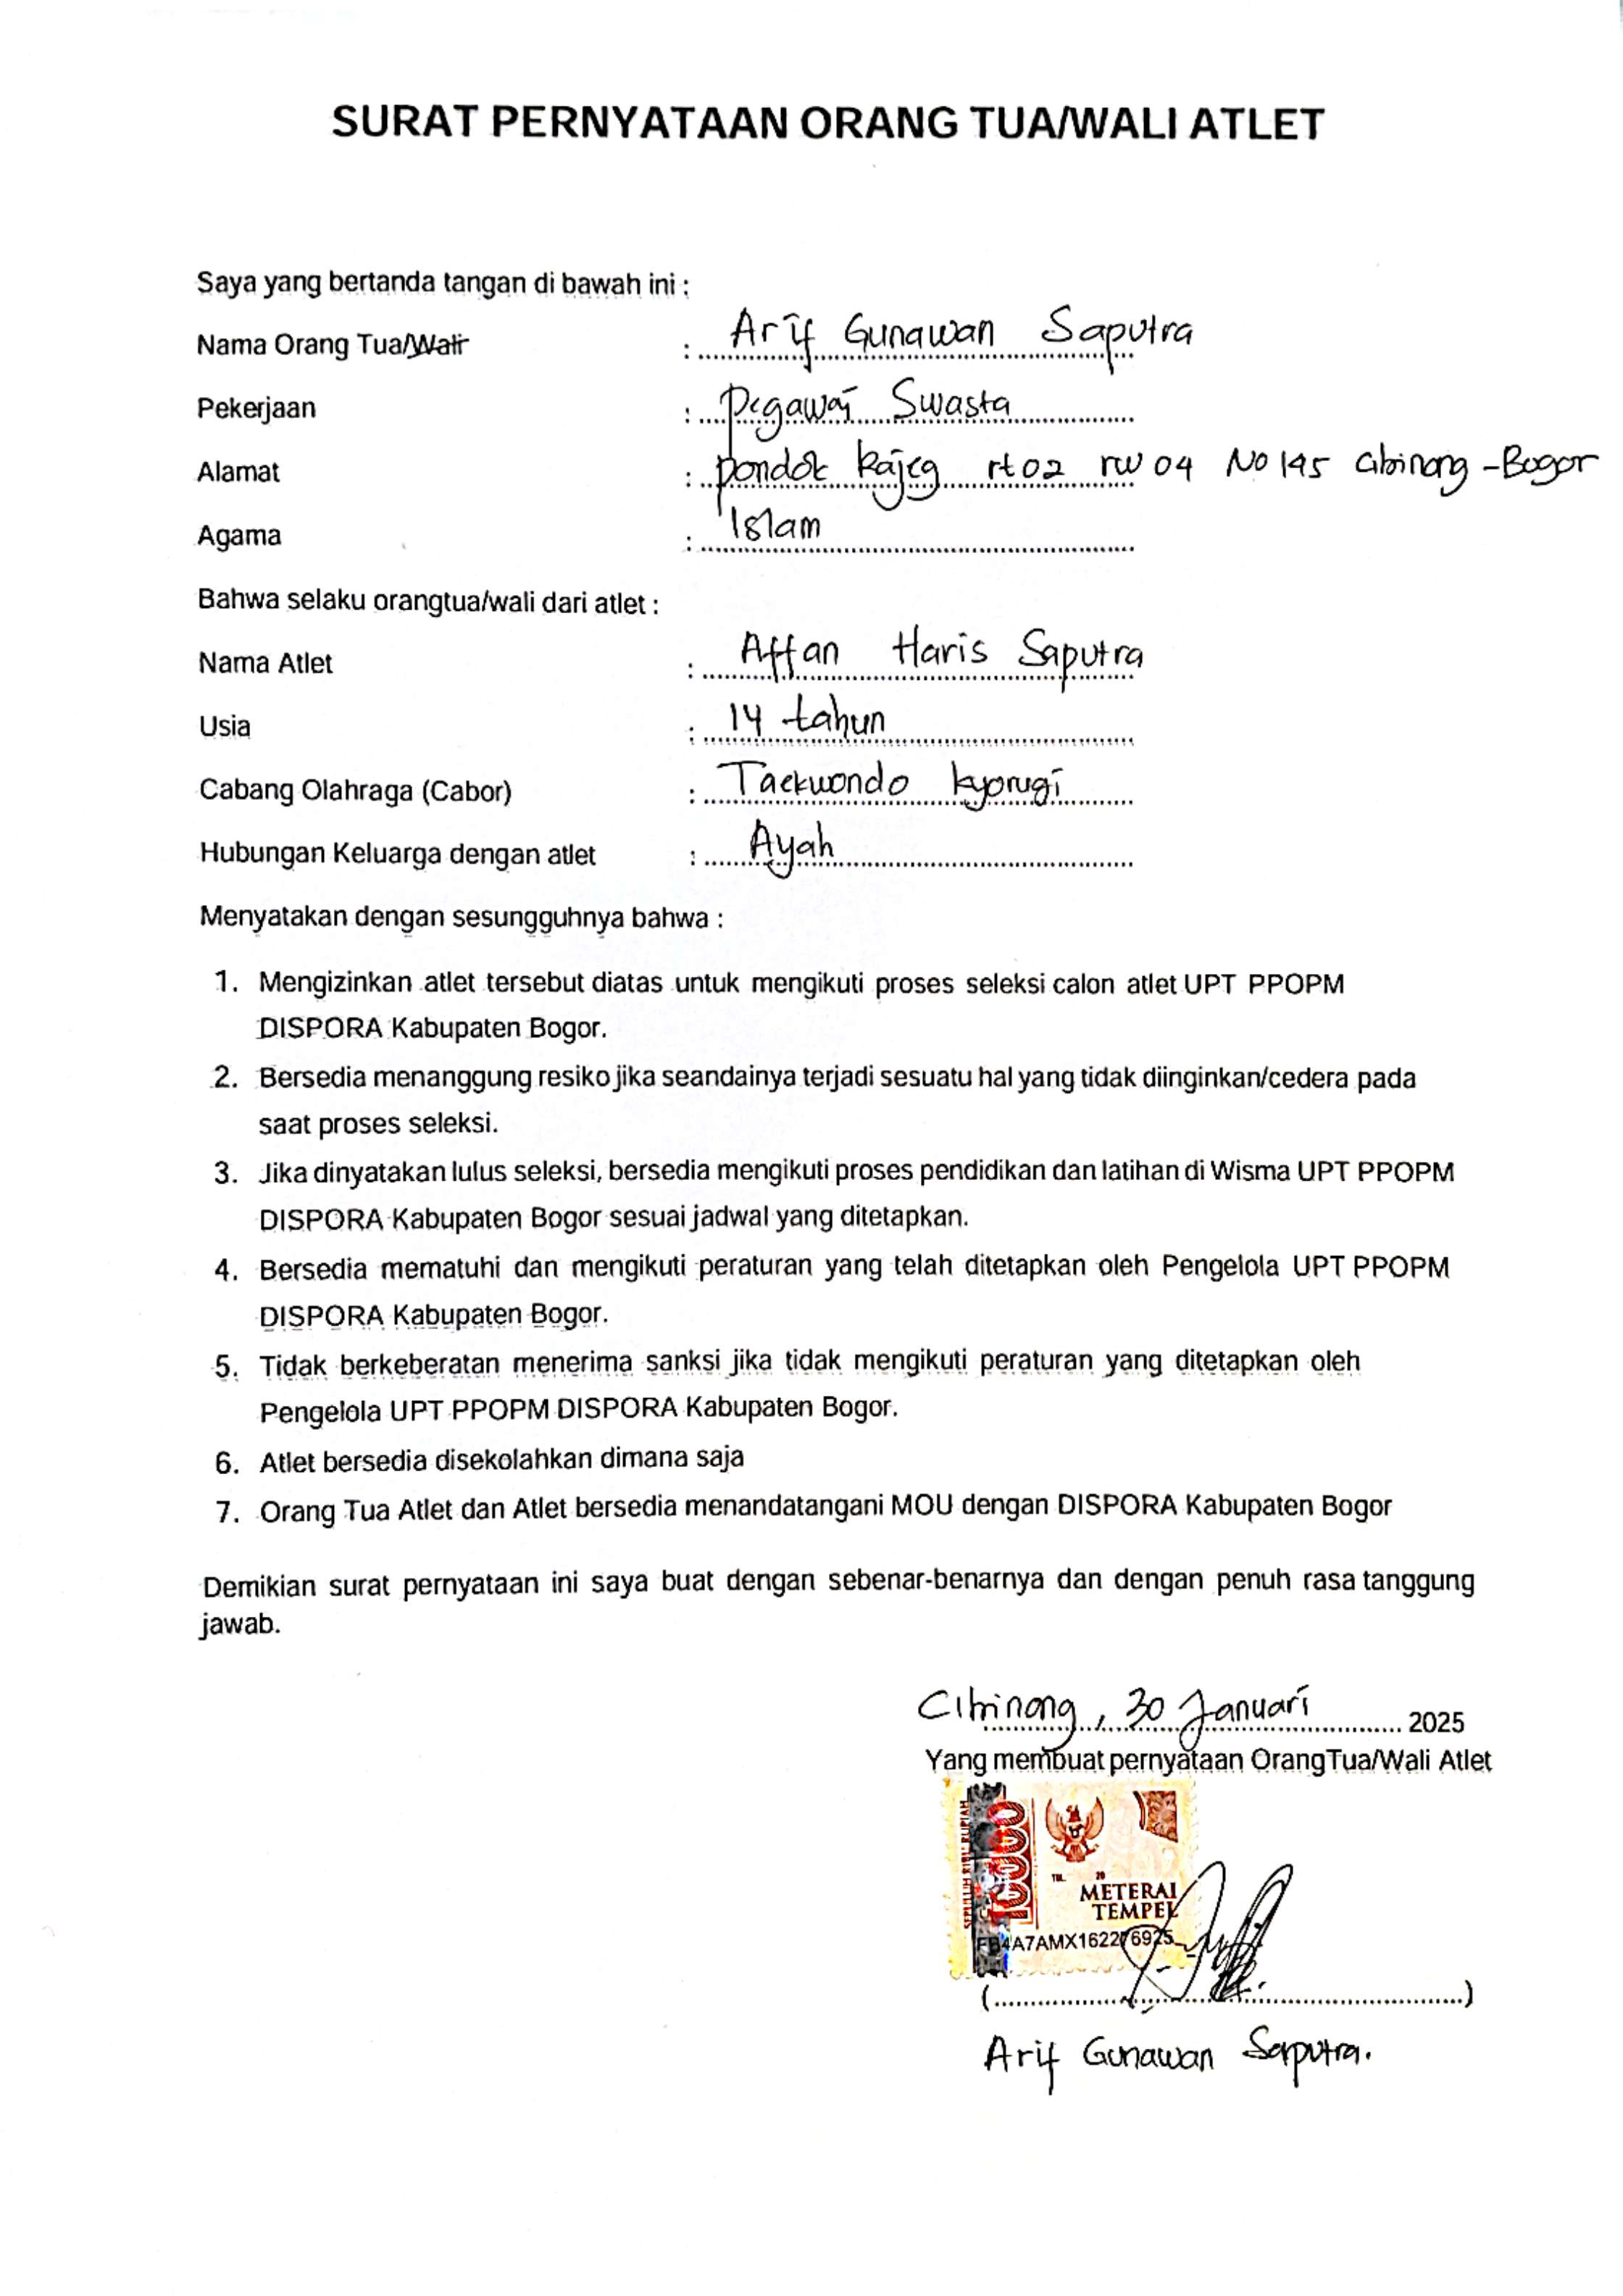 SURAT PERNYATAAN ORANG TUA/WALI ATLET
Saya yang bertanda tangan di bawah ini :
Nama Orang Tua/Wali : Arif Gunawan Saputra
Pekerjaan : Pegawai Swasta
Alamat : pondok kajeg rt 02 rw 04 No 145 Cibinong - Bogor
Agama : Islam
Bahwa selaku orangtua/wali dari atlet :
Nama Atlet : Affan Haris Saputra
Usia : 14 tahun
Cabang Olahraga (Cabor) : Taekwondo kyorugi
Hubungan Keluarga dengan atlet : Ayah
Menyatakan dengan sesungguhnya bahwa :
1. Mengizinkan atlet tersebut diatas untuk mengikuti proses seleksi calon atlet UPT PPOPM
DISPORA Kabupaten Bogor.
2. Bersedia menanggung resiko jika seandainya terjadi sesuatu hal yang tidak diinginkan/cedera pada
saat proses seleksi.
3. Jika dinyatakan lulus seleksi, bersedia mengikuti proses pendidikan dan latihan di Wisma UPT PPOPM
DISPORA Kabupaten Bogor sesuai jadwal yang ditetapkan.
4. Bersedia mematuhi dan mengikuti peraturan yang telah ditetapkan oleh Pengelola UPT PPOPM
DISPORA Kabupaten Bogor.
5. Tidak berkeberatan menerima sanksi jika tidak mengikuti peraturan yang ditetapkan oleh
Pengelola UPT PPOPM DISPORA Kabupaten Bogor.
6. Atlet bersedia disekolahkan dimana saja
7. Orang Tua Atlet dan Atlet bersedia menandatangani MOU dengan DISPORA Kabupaten Bogor
Demikian surat pernyataan ini saya buat dengan sebenar-benarnya dan dengan penuh rasa tanggung
jawab.
Cibinong, 30 Januari 2025
Yang membuat pernyataan OrangTua/Wali Atlet
SEPULUH RIBU RUPIAH
10000
TGL. 20
METERAI
TEMPEL
(....................)
Arif Gunawan Saputra.